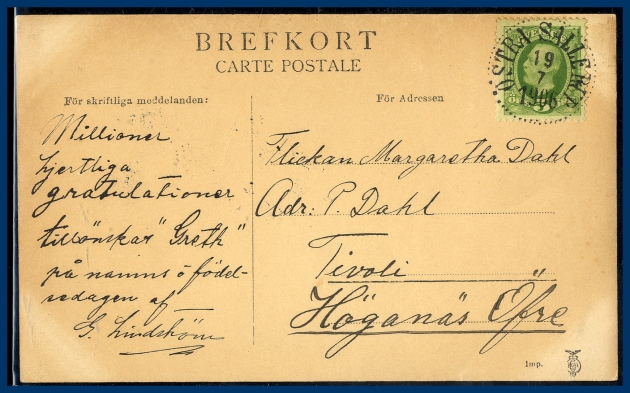 BREFKORT
CARTE POSTALE
ÖSTRA SALLERUP
19
7
1906
För skriftliga meddelanden:
För Adressen
Millioner
hjertliga
gratulationer
tillönskas "Greth"
på namns o födel-
sedagen af
G. Lindström
Flickan Margaretha Dahl
Adr: P. Dahl
Tivoli
Höganäs Öfre
Imp.